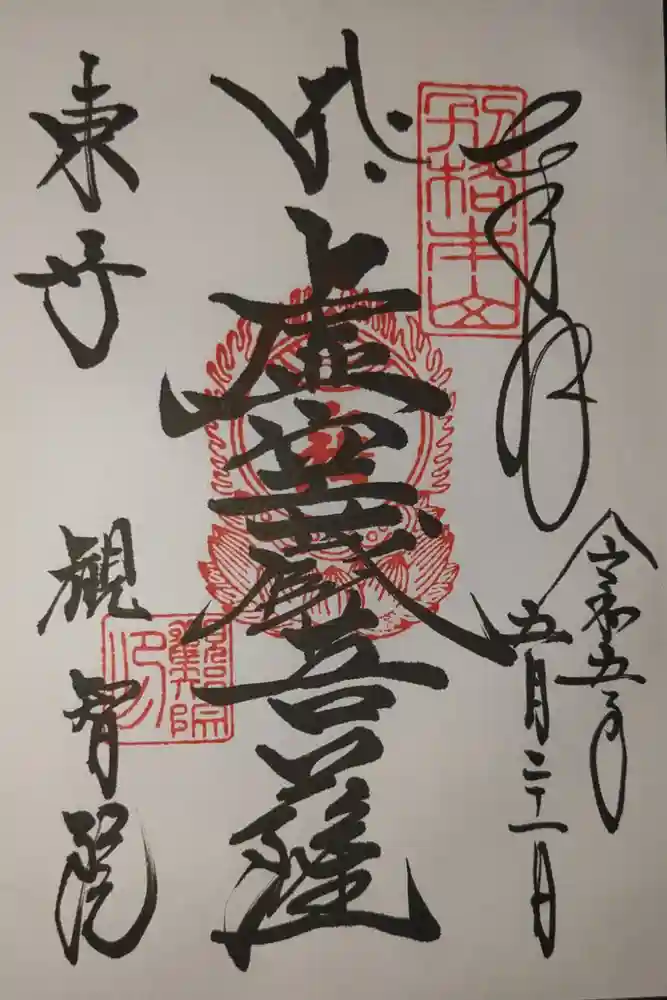 奉拝
令和五年
五月二十一日
別格本山
虚空蔵菩薩
東寺
観智院